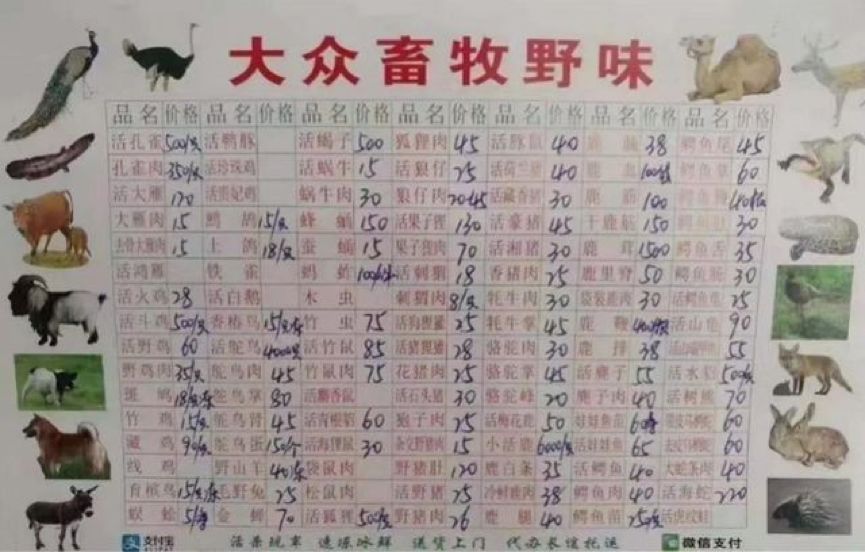 大众畜牧野味
品名 价格 品名 价格 品名 价格 品名 价格 品名 价格 品名 价格 品名 价格
活孔雀 500/只 活鸭豚 活蝎子 500 狐狸肉 45 活豚鼠 40 38 鳄鱼尾 45
孔雀肉 350/只 活珍珠鸡 活蜗牛 15 活狼仔 25 活荷兰猪 40 60
活大雁 120 活贵妃鸡 蜗牛肉 30 狼仔肉 活藏香猪 30 鹿筋 100
大雁肉 15 15/只 蜂蛹 150 活果子狸 130 活豪猪 45 干鹿筋 150 30
去骨大雁肉 15 土鸽 18/只 蚕蛹 15 果子狸肉 70 活湘猪 30 鹿茸 1500 鳄鱼舌 35
活鸿雁 铁雀 蚂蚱 活刺猬 18 香猪肉 25 鹿里脊 50 鳄鱼肠 30
活火鸡 28 活白鹅 木虫 刺猬肉 8/只 牦牛肉 30 袋装鹿肉 30 活鳄鱼龟 25
活斗鸡 500/只 香榛鸟 竹虫 75 活狗狸獾 25 牦牛掌 45 鹿鞭 活山龟 90
活野鸡 60 活鸵鸟 4000/只 活竹鼠 85 活猪狸獾 28 骆驼肉 30 鹿排 38 55
野鸡肉 35/只 鸵鸟肉 45 竹鼠肉 75 花猪肉 25 骆驼掌 45 活麂子 55 活水貂 500/只
斑鸠 鸵鸟掌 80 活麝香鼠 活石头猪 30 骆驼峰 20 麂子肉 40 活树熊 70
竹鸡 15/只 鸵鸟胃 45 活青根貂 60 狍子肉 25 活梅花鹿 50 娃娃鱼苗 60
藏鸡 90/只 鸵鸟蛋 150/个 活海狸鼠 30 杂交野猪肉 15 小活鹿 6000/只 活娃娃鱼 65 60
线鸡 野山羊 袋鼠肉 野猪肚 120 鹿白条 35 活鳄鱼 40 大蛇条肉 40
育槟鸟 毛野兔 25 松鼠肉 活野猪 25 冷鲜鹿肉 38 鳄鱼肉 40 活海蛇 220
蜈蚣 金蝉 70 活狐狸 500/只 野猪肉 26 鹿腿 40 鳄鱼苗 活虎纹蛙
支付宝 活杀现宰 速冻冰鲜 送货上门 代办长途托运 微信支付